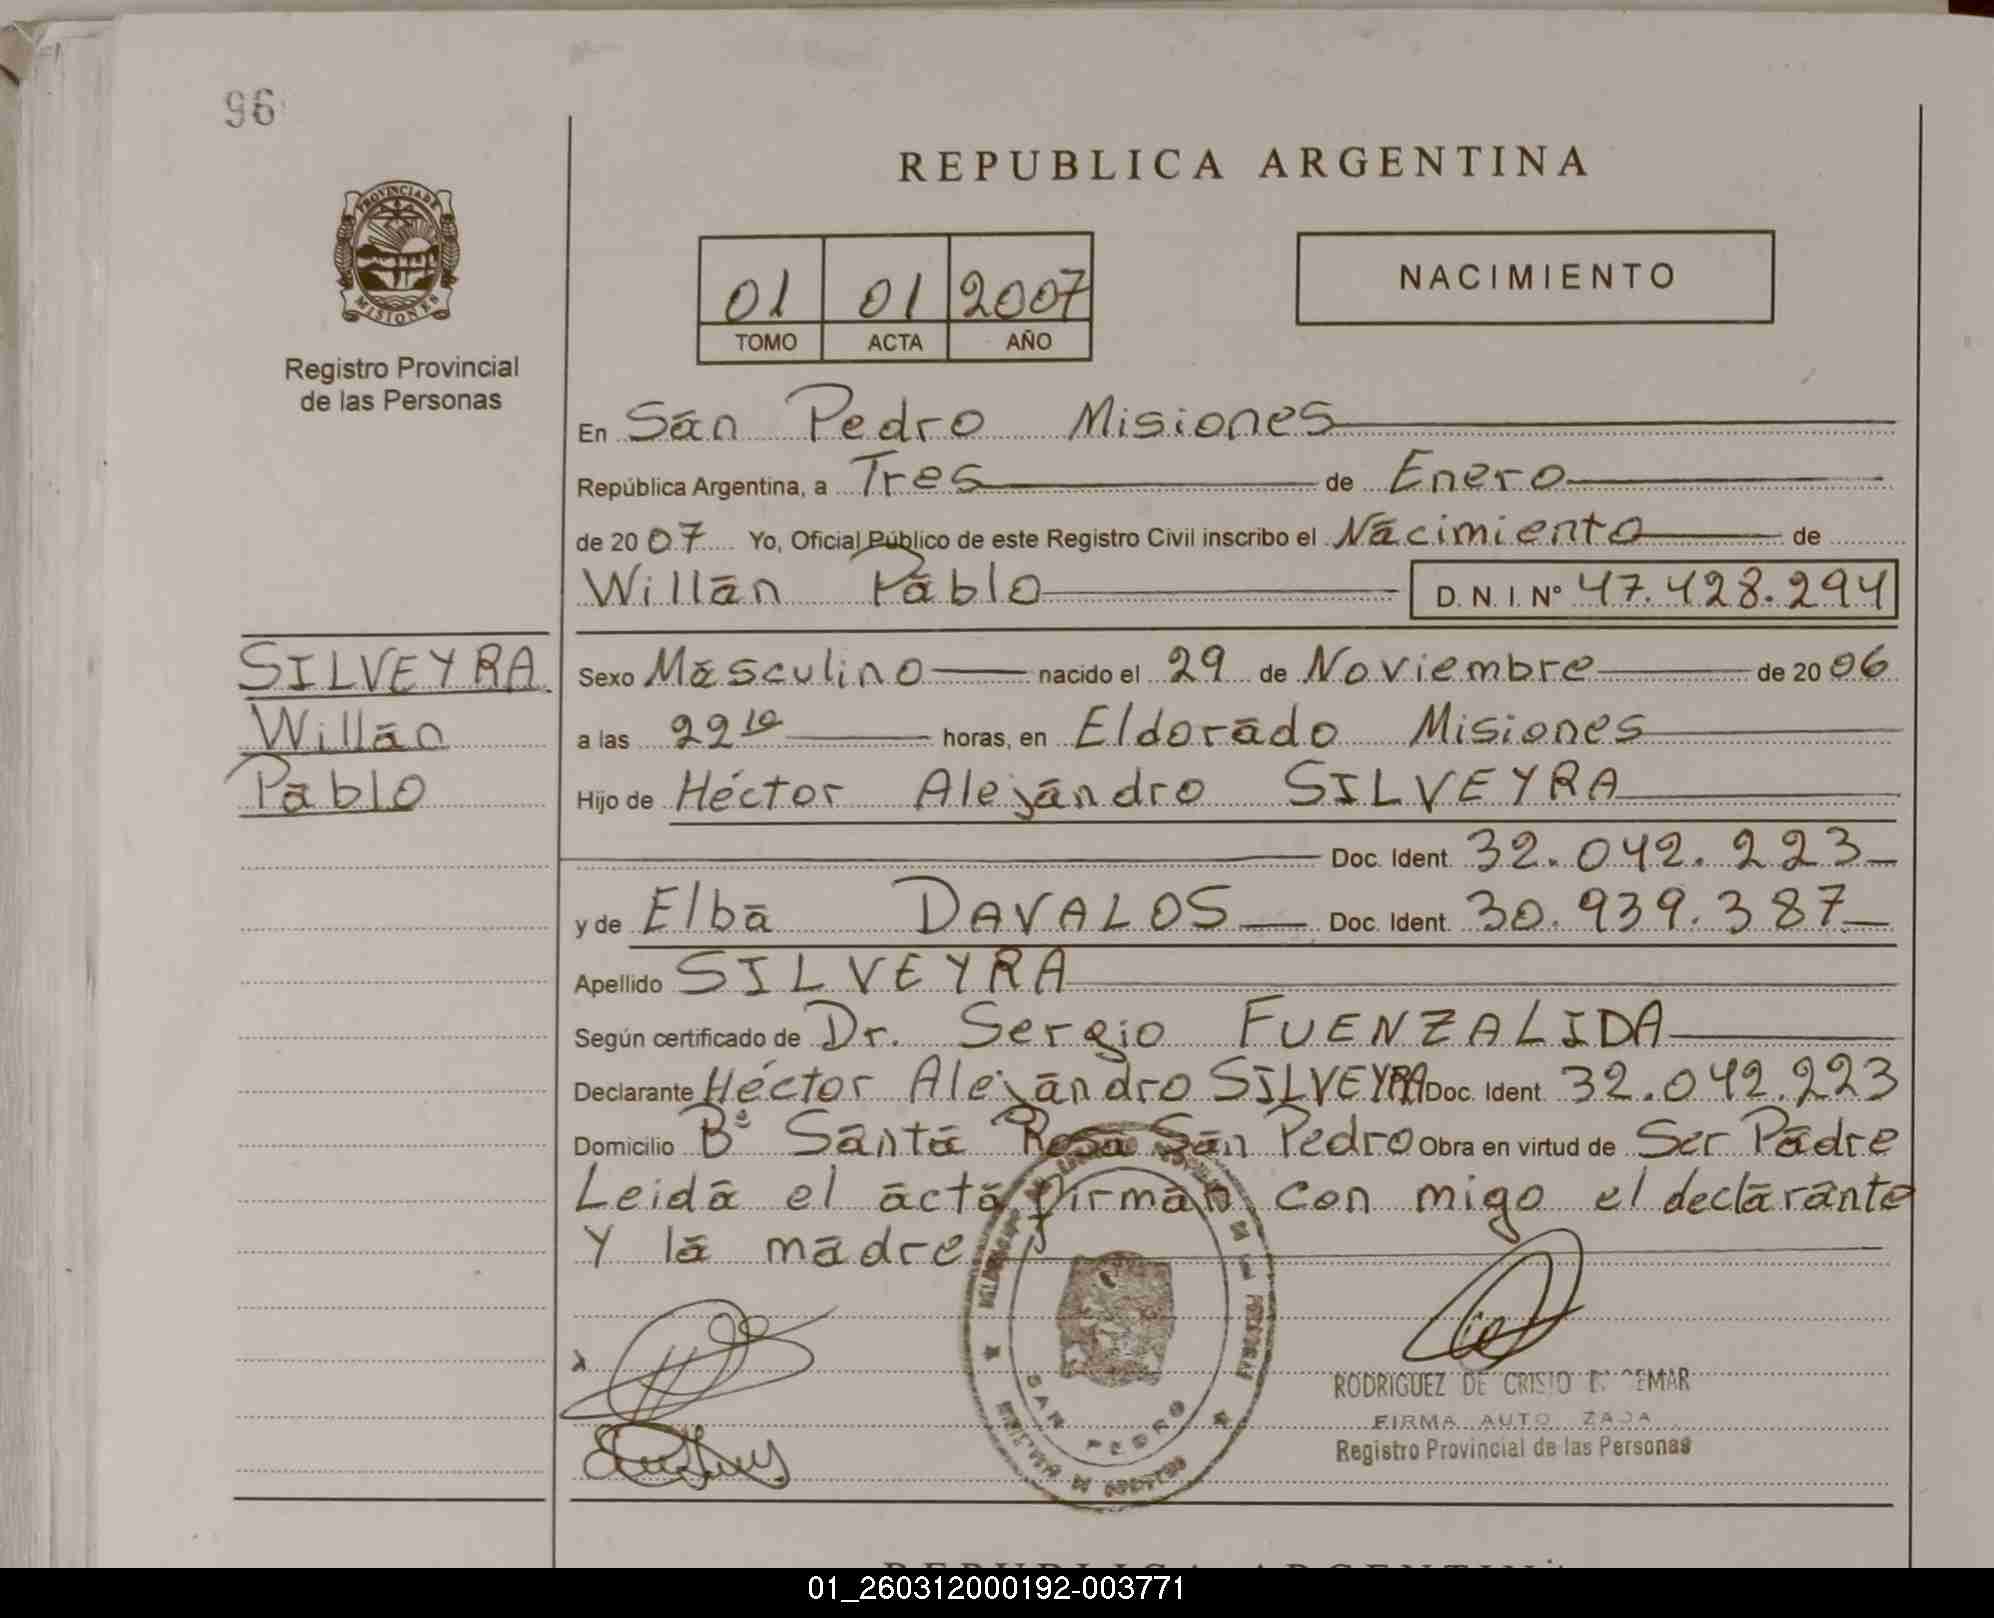 96
REPUBLICA ARGENTINA
PROVINCIA DE
MISIONES
Registro Provincial
de las Personas
01 01 2007
TOMO ACTA AÑO
NACIMIENTO
En San Pedro Misiones
República Argentina, a Tres de Enero
de 2007 Yo, Oficial Público de este Registro Civil inscribo el Nacimiento de
Willan Pablo D.N.I. Nº 47.428.294
SILVEYRA
Willan
Pablo
Sexo Masculino nacido el 29 de Noviembre de 2006
a las 22 10 horas, en Eldorado Misiones
Hijo de Héctor Alejandro SILVEYRA
Doc. Ident. 32.042.223
y de Elba DAVALOS Doc. Ident. 30.939.387
Apellido SILVEYRA
Según certificado de Dr. Sergio FUENZALIDA
Declarante Héctor Alejandro SILVEYRA Doc. Ident. 32.042.223
Domicilio Bº Santa Rosa San Pedro Obra en virtud de Ser Padre
Leida el acta firman con migo el declarante
Y la madre
SAN PEDRO
RODRIGUEZ DE CRISTO
FIRMA AUTO ZADA
Registro Provincial de las Personas
REPUBLICA ARGENTINA
01_260312000192-003771